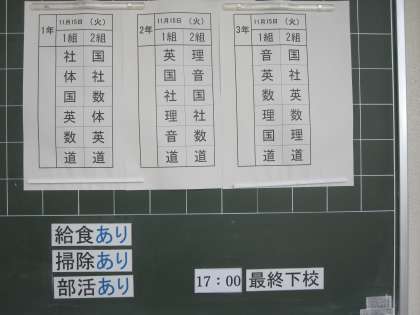 1年 11月15日 (火)
1組 2組
社 国
体 社
国 数
英 体
数 英
道 道
2年 11月15日 (火)
1組 2組
英 理
国 音
社 国
理 社
音 数
道 道
3年 11月15日 (火)
1組 2組
音 国
英 社
数 英
理 数
国 理
道 道
給食あり
掃除あり
部活あり
17:00 最終下校